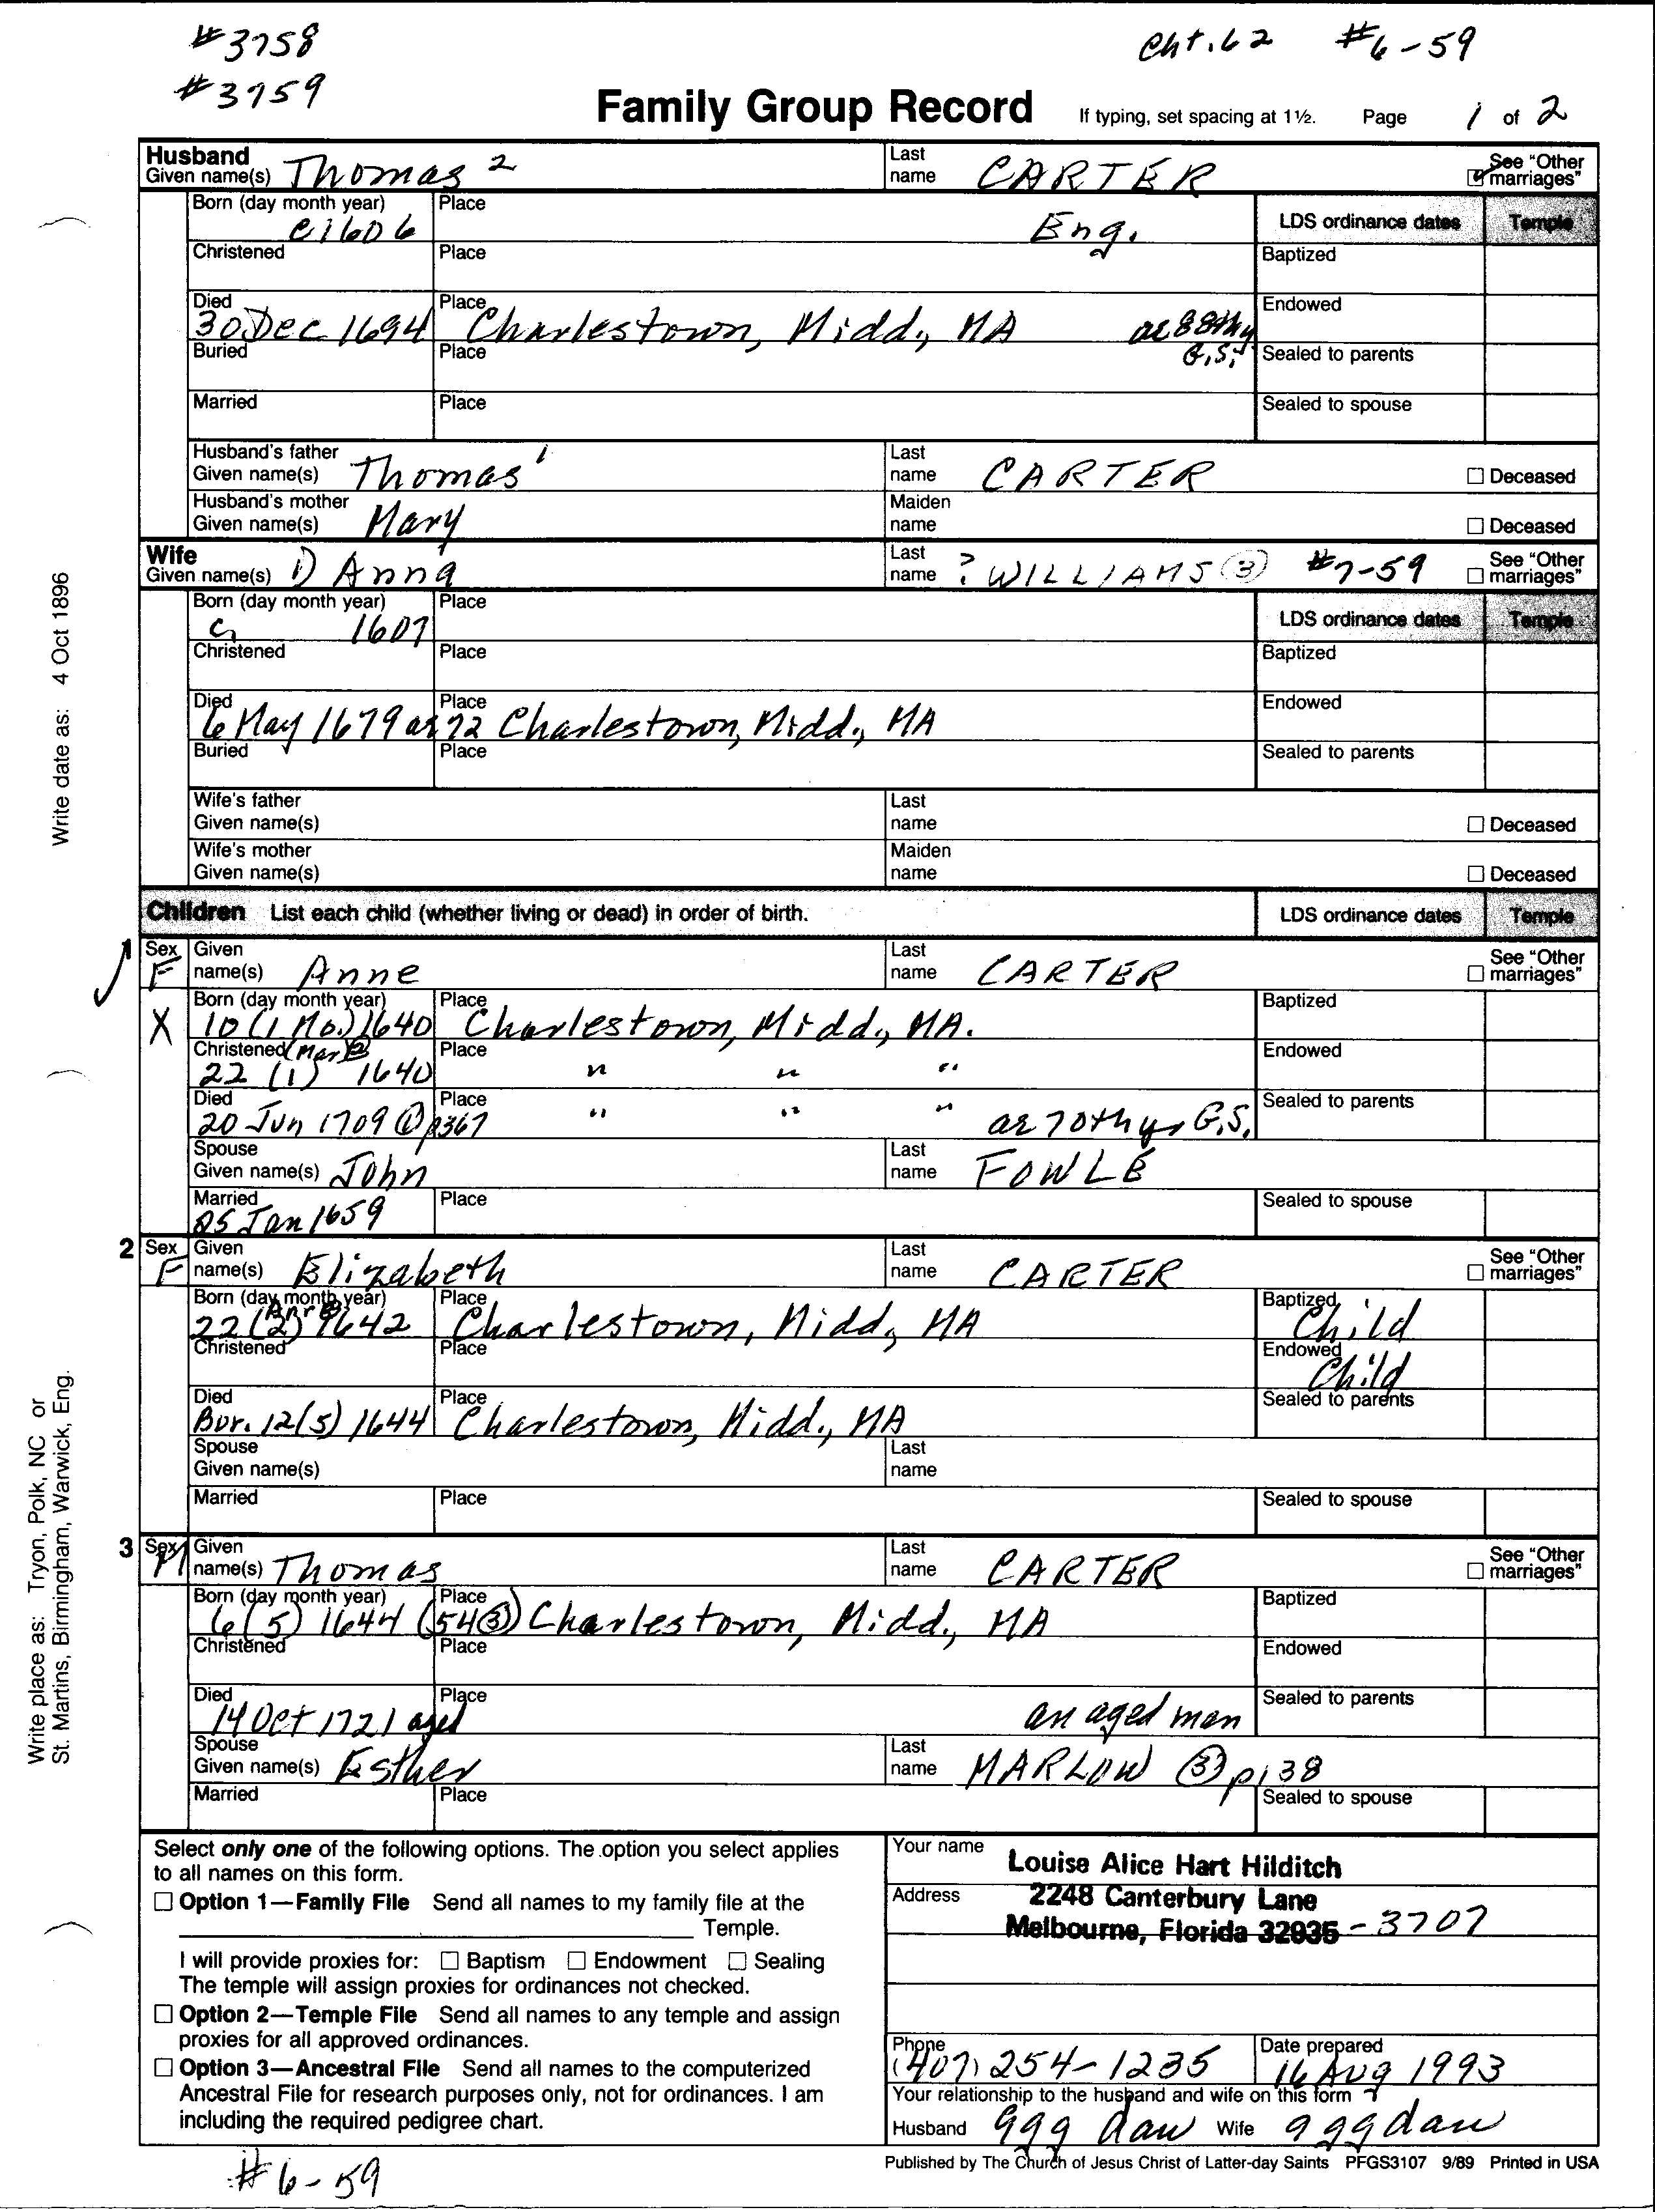 #3758
Cht. 62 #6-59
#3759
Family Group Record If typing, set spacing at 1½. Page 1 of 2
Husband
Given name(s) Thomas 2 Last name CARTER See "Other marriages"
Born (day month year) c1606 Place Eng. LDS ordinance dates Temple
Christened Place Baptized
Died 30 Dec 1694 Place Charlestown, Midd., MA ae 88th y G.S. Endowed
Buried Place Sealed to parents
Married Place Sealed to spouse
Husband's father
Given name(s) Thomas 1 Last name CARTER Deceased
Husband's mother
Given name(s) Mary Maiden name Deceased
Wife
Given name(s) 1) Anna Last name ? WILLIAMS (3) #7-59 See "Other marriages"
Born (day month year) c 1607 Place LDS ordinance dates Temple
Christened Place Baptized
Died 6 May 1679 ae 72 Place Charlestown, Midd., MA Endowed
Buried Place Sealed to parents
Wife's father
Given name(s) Last name Deceased
Wife's mother
Given name(s) Maiden name Deceased
Children List each child (whether living or dead) in order of birth. LDS ordinance dates Temple
1 Sex F Given name(s) Anne Last name CARTER See "Other marriages"
X Born (day month year) 10 (1 Mo.) 1640 Place Charlestown, Midd., MA. Baptized
Christened (Mar) 22 (1) 1640 Place " " " Endowed
Died 20 Jun 1709 (1) p367 Place " " " ae 70th yr G.S. Sealed to parents
Spouse
Given name(s) John Last name FOWLE
Married 25 Jan 1659 Place Sealed to spouse
2 Sex F Given name(s) Elizabeth Last name CARTER See "Other marriages"
Born (day month year) 22 (2) Apr 1642 Place Charlestown, Midd, MA Baptized Child
Christened Place Endowed Child
Died Bur. 12 (5) 1644 Place Charlestown, Midd., MA Sealed to parents
Spouse
Given name(s) Last name
Married Place Sealed to spouse
3 Sex M Given name(s) Thomas Last name CARTER See "Other marriages"
Born (day month year) 6 (5) 1644 (54 (3)) Place Charlestown, Midd., MA Baptized
Christened Place Endowed
Died 14 Oct 1721 aged Place an aged man Sealed to parents
Spouse
Given name(s) Esther Last name MARLOW (3) p138
Married Place Sealed to spouse
Select only one of the following options. The option you select applies
to all names on this form.
Option 1—Family File Send all names to my family file at the
Temple.
I will provide proxies for: Baptism Endowment Sealing
The temple will assign proxies for ordinances not checked.
Option 2—Temple File Send all names to any temple and assign
proxies for all approved ordinances.
Option 3—Ancestral File Send all names to the computerized
Ancestral File for research purposes only, not for ordinances. I am
including the required pedigree chart.
Your name Louise Alice Hart Hilditch
Address 2248 Canterbury Lane
Melbourne, Florida 32935 - 3707
Phone (407) 254-1235 Date prepared 16 Aug 1993
Your relationship to the husband and wife on this form
Husband ggg dau Wife gggdau
Published by The Church of Jesus Christ of Latter-day Saints PFGS3107 9/89 Printed in USA
#6-59
Write date as: 4 Oct 1896
Write place as: Tryon, Polk, NC or
St. Martins, Birmingham, Warwick, Eng.